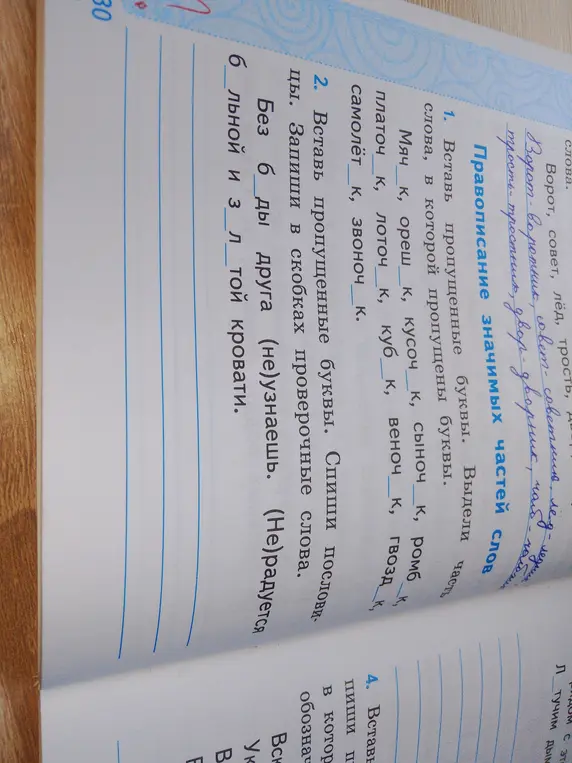 слова.
Ворот, совет, лёд, трость,
Ворот-воротник, совет-советник, лёд-ледник,
трость-тростник, двор-дворник,
Правописание значимых частей слов
1. Вставь пропущенные буквы. Выдели часть
слова, в которой пропущены буквы.
Мяч_к, ореш_к, кусоч_к, сыноч_к, ромб_к,
платоч_к, лоточ_к, куб_к, веноч_к, гвозд_к,
самолёт_к, звоноч_к.
2. Вставь пропущенные буквы. Спиши послови-
цы. Запиши в скобках проверочные слова.
Без б_ды друга (не)узнаешь. (Не)радуется
б_льной и з_л_той кровати.
30
Л_тучим
4. Встав
пиши п
в котор
обознач